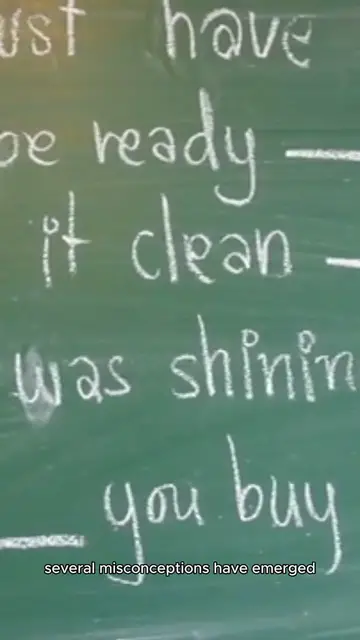 ust have
be ready
it clean
was shinin
you buy
several misconceptions have emerged